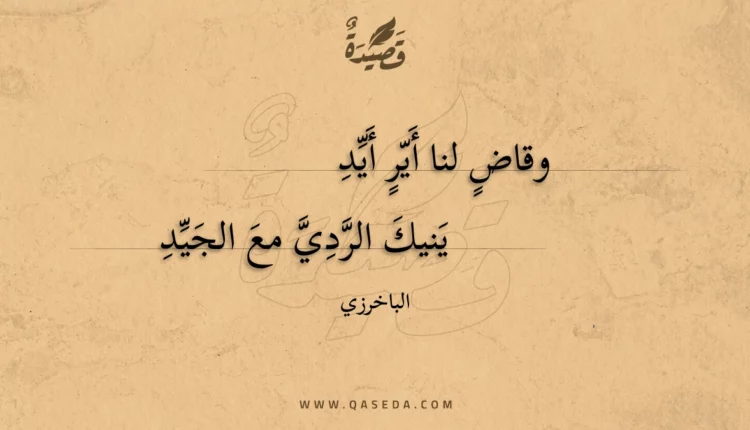 قَصِيْدَةٌ
وقاضٍ لنا أَيّرٍ أَيِّدِ
يَنيكَ الرَّدِيَّ معَ الجَيِّدِ
الباخرزي
WWW.QASEDA.COM